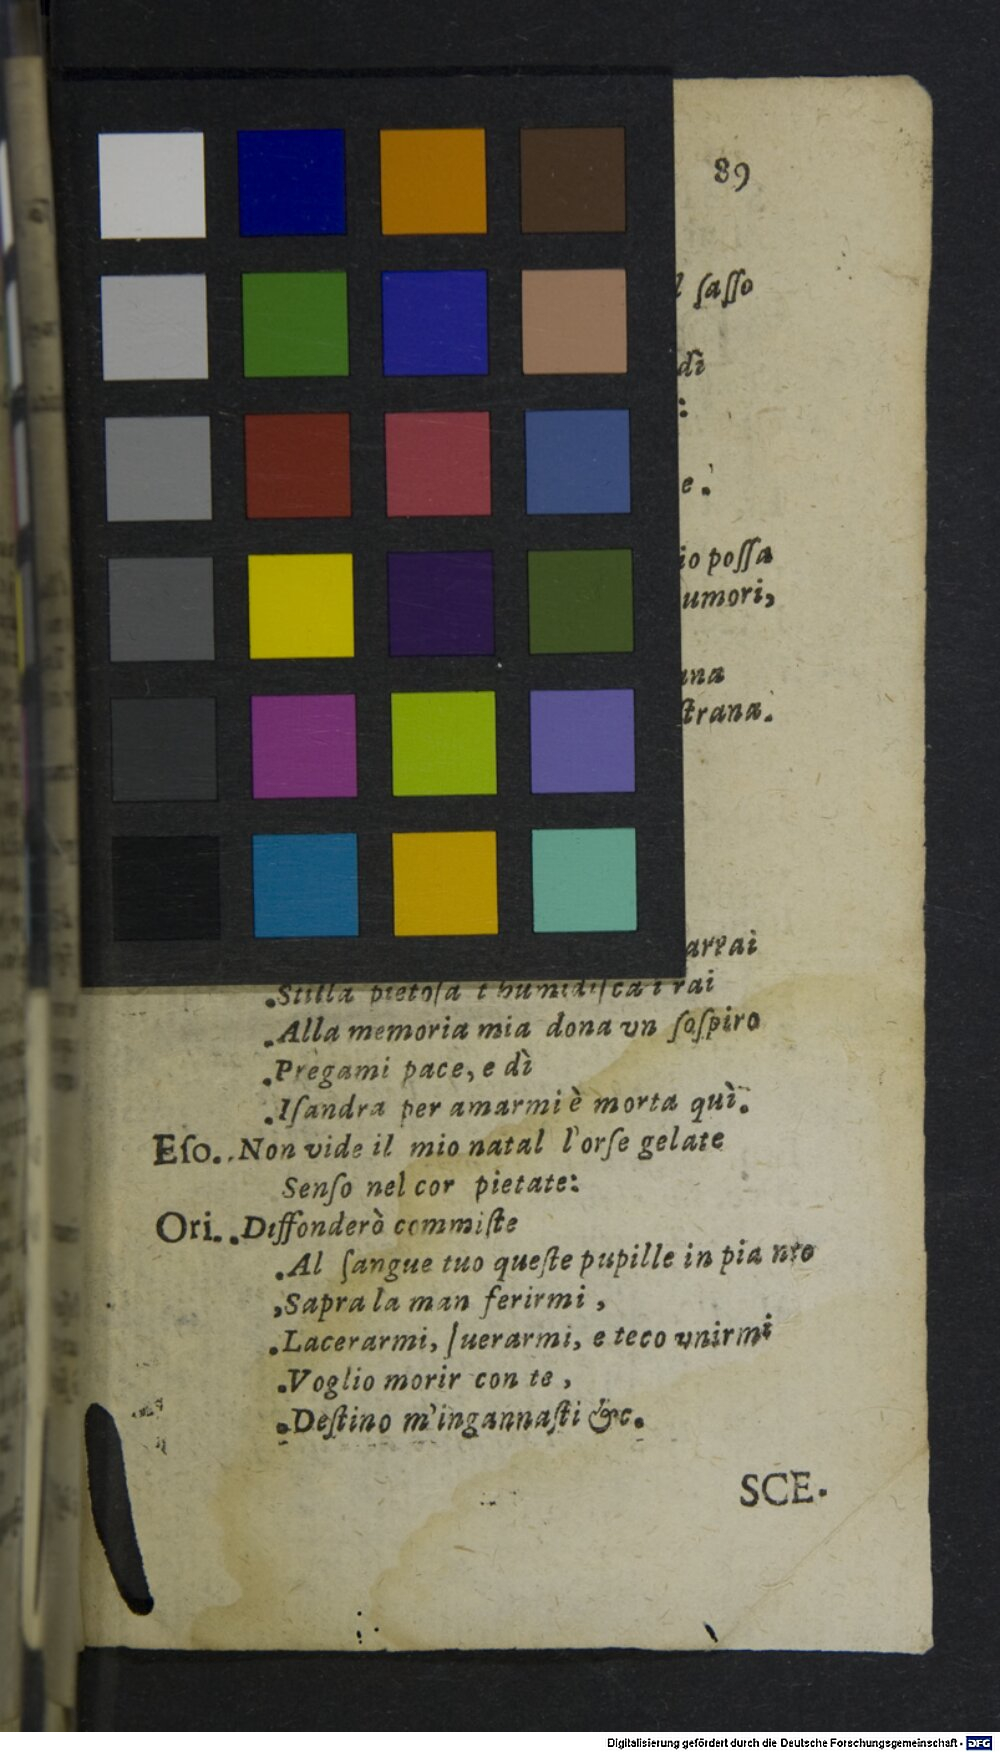 89
ſaſſo
dì
:
e.
io poſſa
umori,
na
ſtrana.
arrai
Stilla pietoſa t'humidiſca i rai
Alla memoria mia dona vn ſoſpiro
Pregami pace, e dì
Iſandra per amarmi è morta quì.
Eſo. Non vide il mio natal l'orſe gelate
Senſo nel cor pietate:
Ori. Diffonderò commiſte
Al ſangue tuo queſte pupille in pianto
Sapra la man ferirmi,
Lacerarmi, ſuerarmi, e teco vnirmi
Voglio morir con te,
Deſtino m'ingannaſti &c.
SCE.
Digitalisierung gefördert durch die Deutsche Forschungsgemeinschaft - DFG